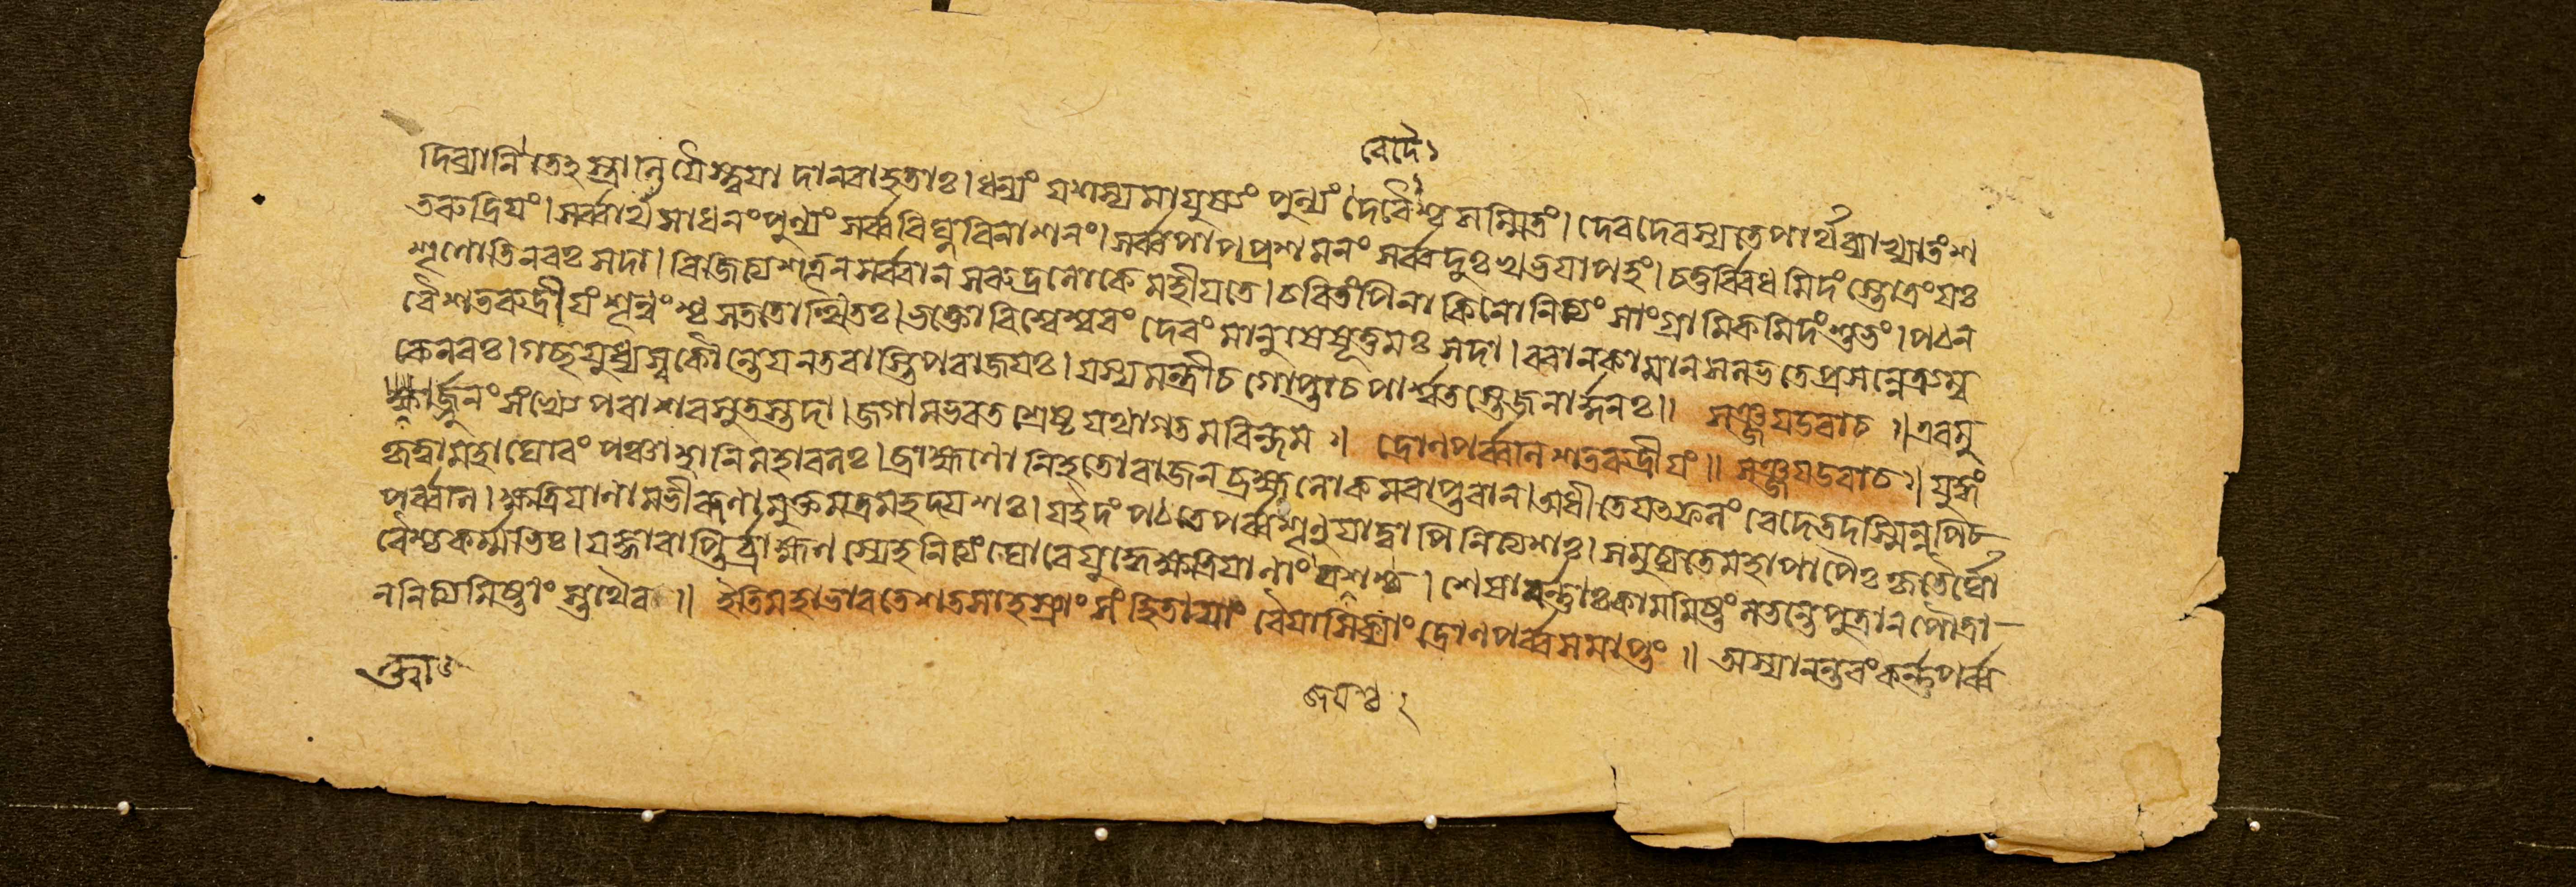 বেদৈ১
দিব্যানি তেঽস্ত্রানি যৈস্ত্বয়া দানবা হতাঃ। ধন্যং যশস্যমায়ুষ্যং পুন্যং দেবৈশ্চ সম্মিতং। দেবদেবস্য তে পার্থ ব্যাখ্যাতং শ
তরুদ্রিয়ং। সর্ব্বার্থসাধনং পুণ্যং সর্ব্ববিঘ্নবিনাশনং। সর্ব্বপাপপ্রশমনং সর্ব্বদুঃখভয়াপহং। চতুর্ব্বিধমিদং স্তোত্রং যঃ
শৃণোতি নরঃ সদা। বিজিত্য শত্রূন সর্ব্বান স রুদ্রলোকে মহীয়তে। চরিতং পিনাকিনো নিত্যং সাংগ্রামিকমিদং শুভং। পঠন
বৈ শতরুদ্রীয়ং শৃন্বংশ্চ সততোত্থিতঃ। ভক্তো বিশ্বেশ্বরং দেবং মানুষেষূত্তমঃ সদা। বরান কামান স লভতে প্রসন্নে ত্র্যম্ব
কে নরঃ। গচ্ছ যুধ্যস্ব কৌন্তেয় ন তবাস্তি পরাজয়ঃ। যস্য মন্ত্রী চ গোপ্তা চ পার্শ্বতস্তে জনার্দ্দনঃ॥ সঞ্জয় উবাচ॥ এবমু
ক্ত্বার্জ্জুনং সংখ্যে পরাশরসুতস্তদা। জগাম ভরতশ্রেষ্ঠ যথাগতমরিন্দম॥ দ্রোণপর্ব্বানি শতরুদ্রীয়ং॥ সঞ্জয় উবাচ॥ যুদ্ধং
কৃত্বা মহাঘোরং পঞ্চাহানি মহাবলঃ। ব্রাহ্মণো নিহতো রাজন ব্রহ্মলোকমবাপ্তবান। অধীতে যৎ ফলং বেদে তদস্মিন্নপি চ
পর্ব্বনি। ক্ষত্রিয়াণামভীরূণামুক্তমত্র মহদ্যশঃ। য ইদং পঠতে পর্ব্ব শৃণুয়াদ্বাপি নিত্যশঃ। স মুচ্যতে মহাপাপৈঃ কৃতৈর্ঘো
রৈশ্চ কর্ম্মভিঃ। যজ্ঞাবাপ্তির্ব্রাহ্মণস্যেহ নিত্যং ঘোরে যুদ্ধে ক্ষত্রিয়ানাং যশশ্চ। শেষা বর্ন্নাঃ কামমিষ্টং লভন্তে পুত্রান পৌত্রা
ন নিত্যমিষ্টাংস্তথৈব॥ ইতি মহাভারতে শতসাহস্র্যাং সংহিতায়াং বৈয়াসিক্যাং দ্রোণপর্ব্ব সমাপ্তং॥ অস্যানন্তরং কর্ন্নপর্ব্ব